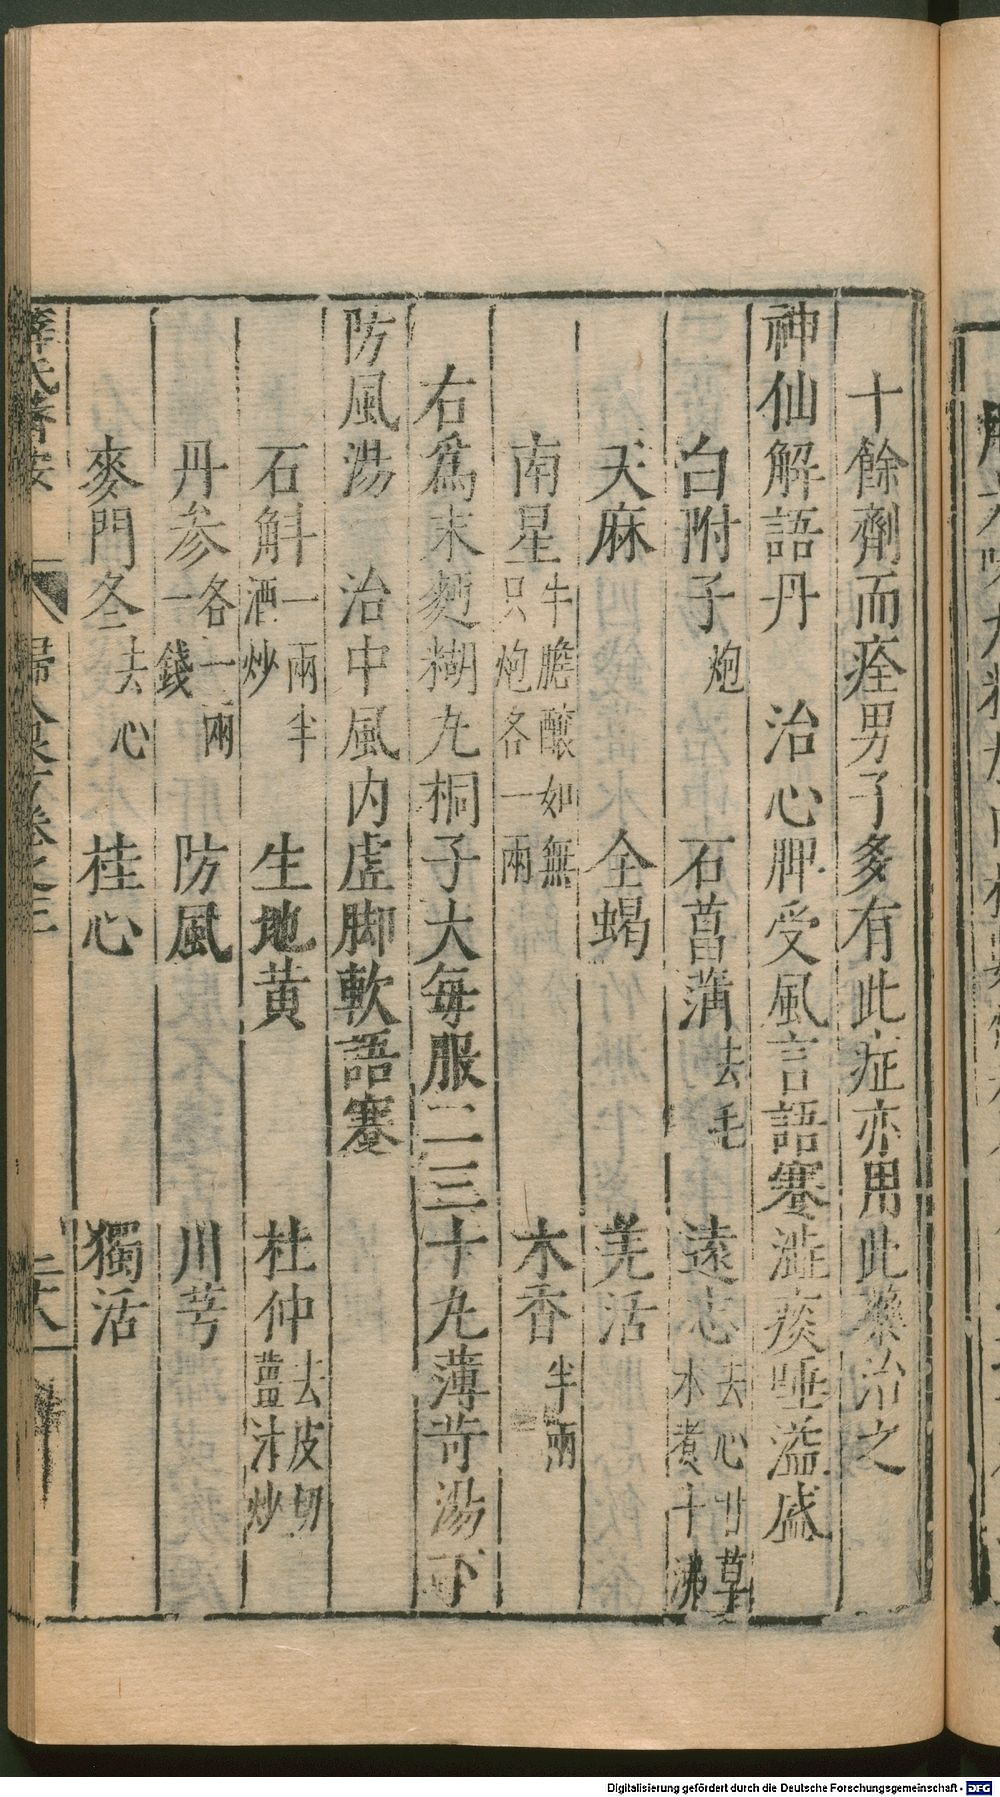 十餘劑而痊男子多有此症亦用此藥治之
神仙解語丹　治心脾受風言語蹇澁痰唾溢盛
白附子炮　石菖蒲去毛　遠志去心甘草水煮十沸
天麻　全蝎　羌活
南星牛膽醸如無只炮各一兩　木香半兩
右爲末麪糊丸桐子大每服二三十丸薄苛湯下
防風湯　治中風內虛脚軟語蹇
石斛一兩半酒炒　生地黄　杜仲去皮切薑汁炒
丹参各一兩一錢　防風　川芎
麥門冬去心　桂心　獨活
薛氏醫按　婦人良方卷之三　二六
Digitalisierung gefördert durch die Deutsche Forschungsgemeinschaft - DFG